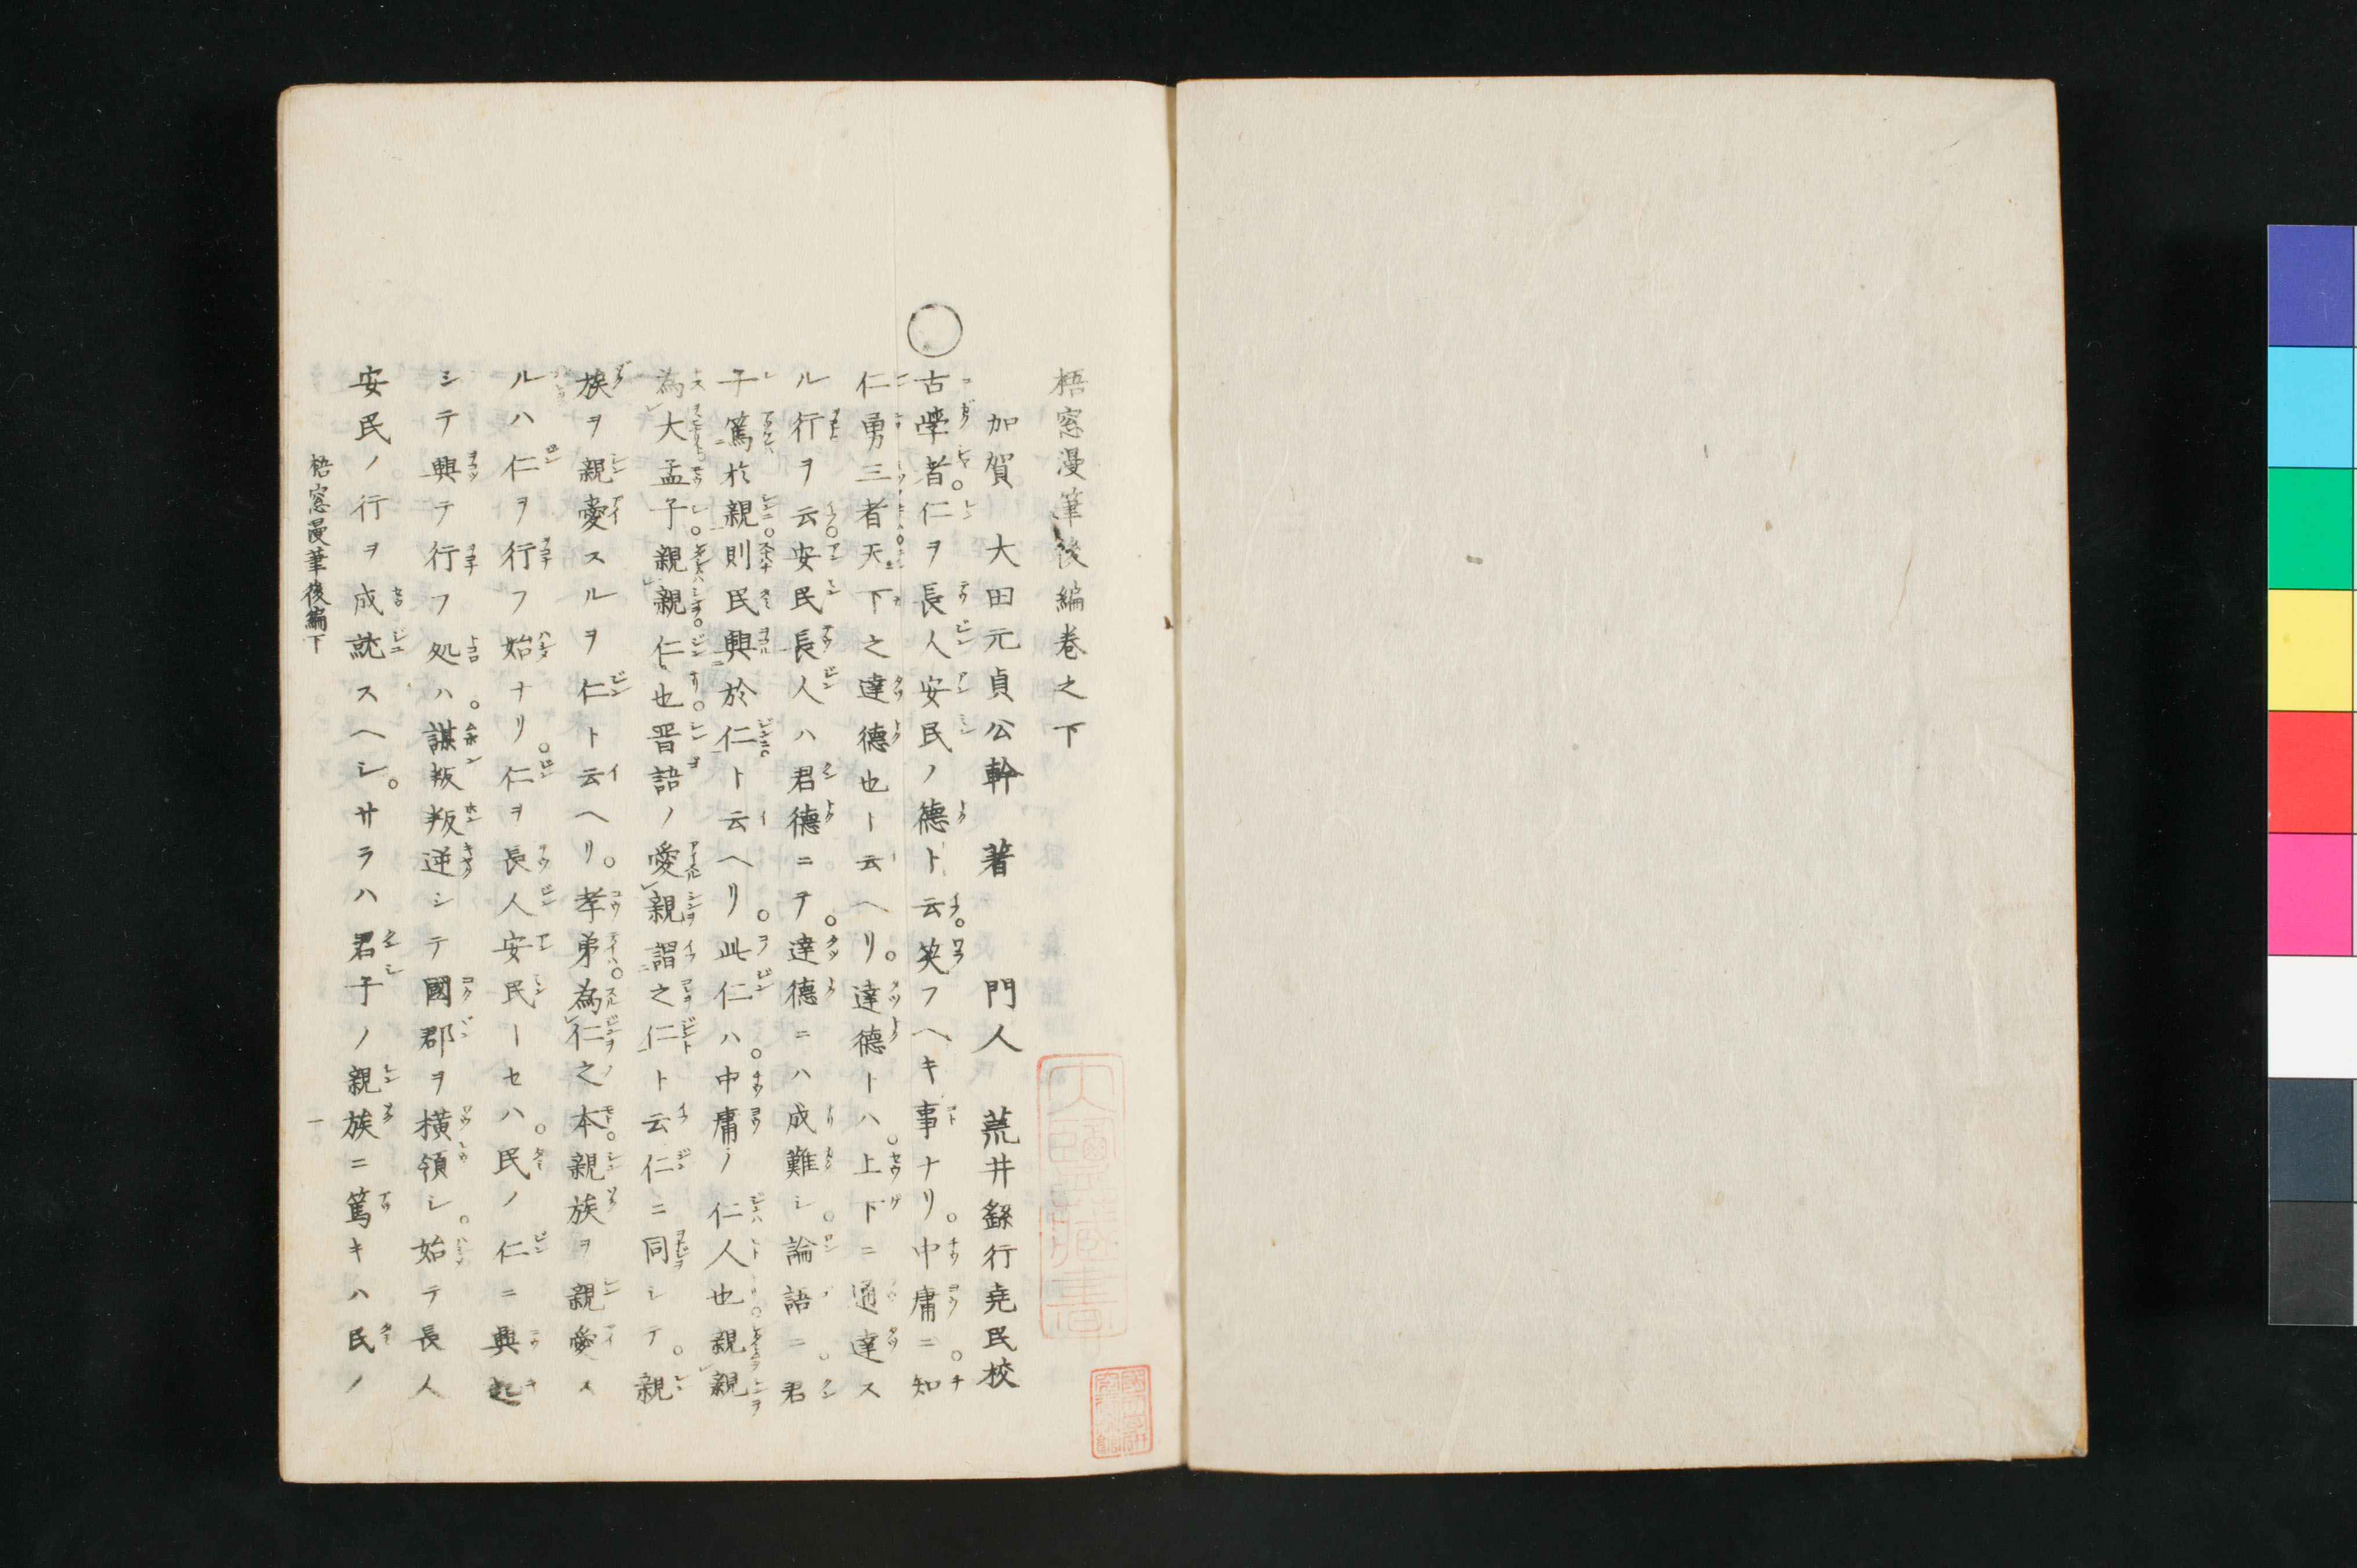 梧窓漫筆後編巻之下
加賀　大田元貞公幹　著　　門人　荒井繇行尭民校
古學者。仁ヲ長人安民ノ德ト云。笑フヘキ事ナリ。中庸ニ。知
仁勇三者。天下之達德也ト云ヘリ。達德トハ。上下ニ通達ス
ル行ヲ云。安民長人ハ君德ニテ。達德ニハ成難シ。論語ニ。君
子篤於親。則民興於仁。ト云ヘリ。此仁ハ。中庸ノ仁人也。親親
為大。孟子。親親。仁也。晋語ノ愛親謂之仁ト云仁ニ同シテ。親
族ヲ親愛スルヲ仁ト云ヘリ。孝弟。為仁之本。親族ヲ親愛ス
ルハ仁ヲ行フ始ナリ。仁ヲ長人安民トセハ。民ノ仁ニ興起
シテ興テ行フ処ハ。謀叛叛逆シテ國郡ヲ横領シ。始テ長人
安民ノ行ヲ成就スヘシ。サラハ君子ノ親族ニ篤キハ民ノ
梧窓漫筆後編下　一